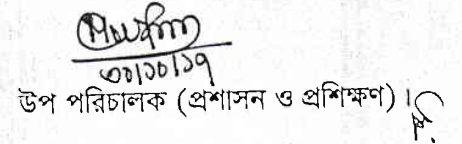 ৩০/১০/১৭
উপ পরিচালক (প্রশাসন ও প্রশিক্ষণ)।